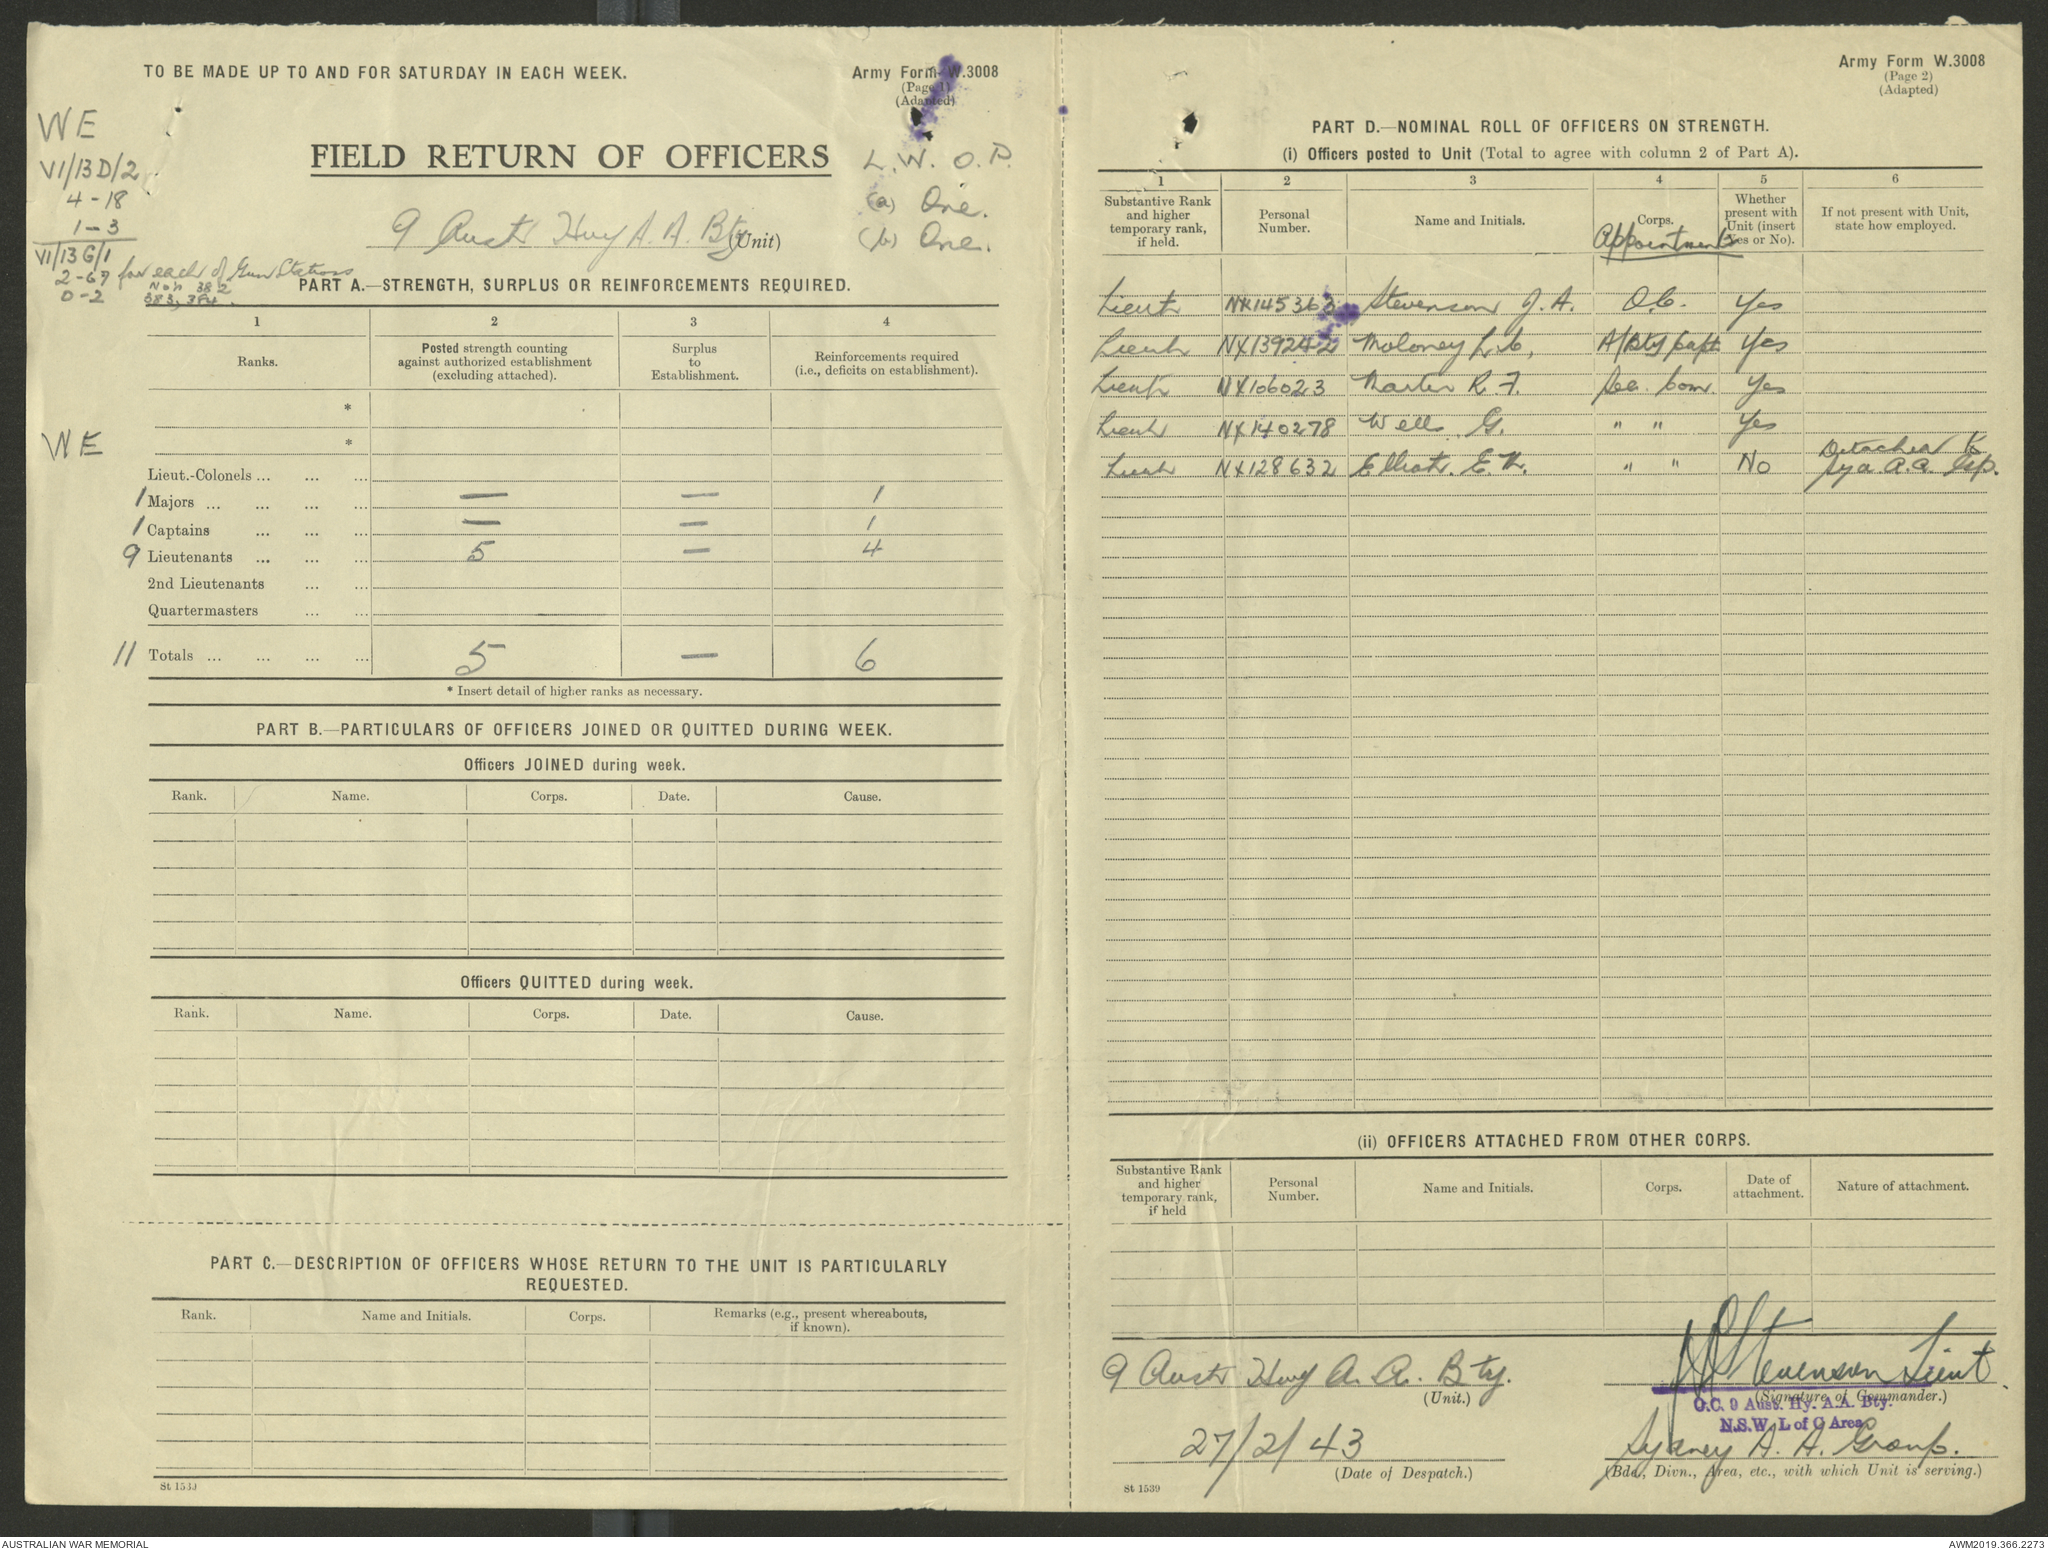 TO BE MADE UP TO AND FOR SATURDAY IN EACH WEEK.
Army Form W.3008
(Page 1)
(Adapted)
WE
VI/13D/2
4-18
1-3
VI/13G/1
2-67 for each of Gun Stations
0-2 No's 382
383, 384.
FIELD RETURN OF OFFICERS
L.W.O.P.
(a) One.
(b) One.
9 Aust Hvy A.A. Bty (Unit)
PART A.—STRENGTH, SURPLUS OR REINFORCEMENTS REQUIRED.
1 2 3 4
Ranks. Posted strength counting against authorized establishment (excluding attached). Surplus to Establishment. Reinforcements required (i.e., deficits on establishment).
*
*
WE
Lieut.-Colonels ... ... ...
1 Majors ... ... ... ... — — 1
1 Captains ... ... ... — — 1
9 Lieutenants ... ... ... 5 — 4
2nd Lieutenants ... ...
Quartermasters ... ...
11 Totals ... ... ... ... 5 — 6
* Insert detail of higher ranks as necessary.
PART B.—PARTICULARS OF OFFICERS JOINED OR QUITTED DURING WEEK.
Officers JOINED during week.
Rank. Name. Corps. Date. Cause.
Officers QUITTED during week.
Rank. Name. Corps. Date. Cause.
PART C.—DESCRIPTION OF OFFICERS WHOSE RETURN TO THE UNIT IS PARTICULARLY
REQUESTED.
Rank. Name and Initials. Corps. Remarks (e.g., present whereabouts, if known).
St 1539
Army Form W.3008
(Page 2)
(Adapted)
PART D.—NOMINAL ROLL OF OFFICERS ON STRENGTH.
(i) Officers posted to Unit (Total to agree with column 2 of Part A).
1 2 3 4 5 6
Substantive Rank and higher temporary rank, if held. Personal Number. Name and Initials. Corps. Appointment Whether present with Unit (insert Yes or No). If not present with Unit, state how employed.
Lieut NX145363 Stevenson J.A. O.C. Yes
Lieut NX139242 Moloney L.C. A/Bty Capt Yes
Lieut NX106023 Martin R.F. Sec. Com. Yes
Lieut NX140278 Wells G. " " Yes
Lieut NX128632 Elliott. " " No Detached to
A.A. Gp.
(ii) OFFICERS ATTACHED FROM OTHER CORPS.
Substantive Rank and higher temporary rank, if held Personal Number. Name and Initials. Corps. Date of attachment. Nature of attachment.
9 Aust Hvy A.A. Bty.
(Unit.)
JAStevenson Lieut.
(Signature of Commander.)
O.C. 9 Aust. Hy. A.A. Bty.
N.S.W. L of C Area
27/2/43
(Date of Despatch.)
Sydney A.A. Group.
(Bde., Divn., Area, etc., with which Unit is serving.)
St 1539
AUSTRALIAN WAR MEMORIAL
AWM2019.366.2273